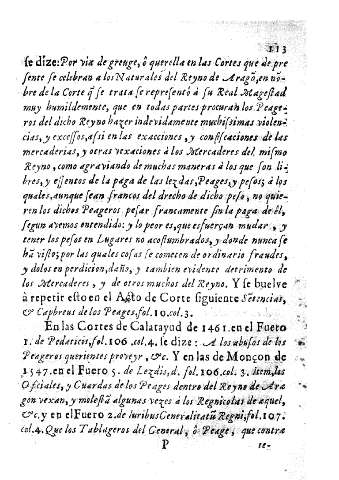 113
se dize: Por via de grenge, ò querella en las Cortes que de pre
sente se celebran a los Naturales del Reyno de Aragõ, en nõ-
bre de la Corte q̃ se trata se representò à su Real Magestad
muy humildemente, que en todas partes procuran los Peage-
ros del dicho Reyno hazer indevidamente muchissimas violen-
cias, y excessos, assi en las exacciones, y confiscaciones de las
mercaderias, y otras vexaciones à los Mercaderes del mismo
Reyno, como agraviando de muchas maneras à los que son li-
bres, y essentos de la paga de las lezdas, Peages, y pesos; à los
quales, aunque sean francos del drecho de dicho peso, no quie-
ren los dichos Peageros pesar francamente sin la paga de èl,
segun avemos entendido: y lo peor es, que esfuerçan mudar, y
tener los pesos en Lugares no acostumbrados, y donde nunca se
hã visto; por las quales cosas se cometen de ordinario fraudes,
y dolos en perdicion, daño, y tambien evidente detrimento de
los Mercaderes, y de otros muchos del Reyno. Y se buelve
à repetir esto en el Acto de Corte siguiente Sentencias,
& Capbreus de los Peages, fol. 10. col. 3.
En las Cortes de Calatayud de 1461. en el Fuero
1. de Pedaticis, fol. 106. col. 4. se dize: A los abusos de los
Peageros querientes proveyr, &c. Y en las de Monçon de
1547. en el Fuero 5. de Lezdis, d. fol. 106. col. 3. Item, los
Oficiales, y Guardas de los Peages dentro del Reyno de Ara
gon vexan, y molestã algunas vezes à los Regnicolas de aquel,
&c. y en el Fuero 2. de Iuribus Generalitatũ Regni, fol. 107.
col. 4. Que los Tablageros del General, ò Peage, que contra
P re-